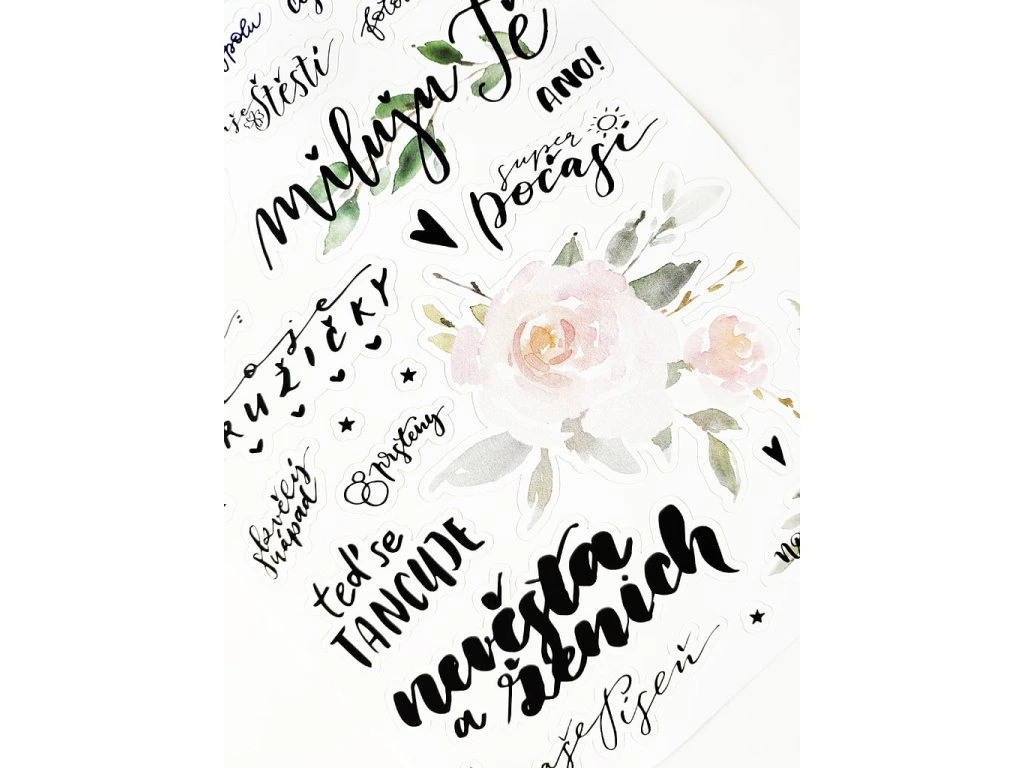 spolu
foto
štěstí
miluju Tě
ANO!
super
počasí
RUŽIČKY
prsteny
skvělý
nápad
teď se
TANCUJE
nevěsta
a ženich
naše Píseň